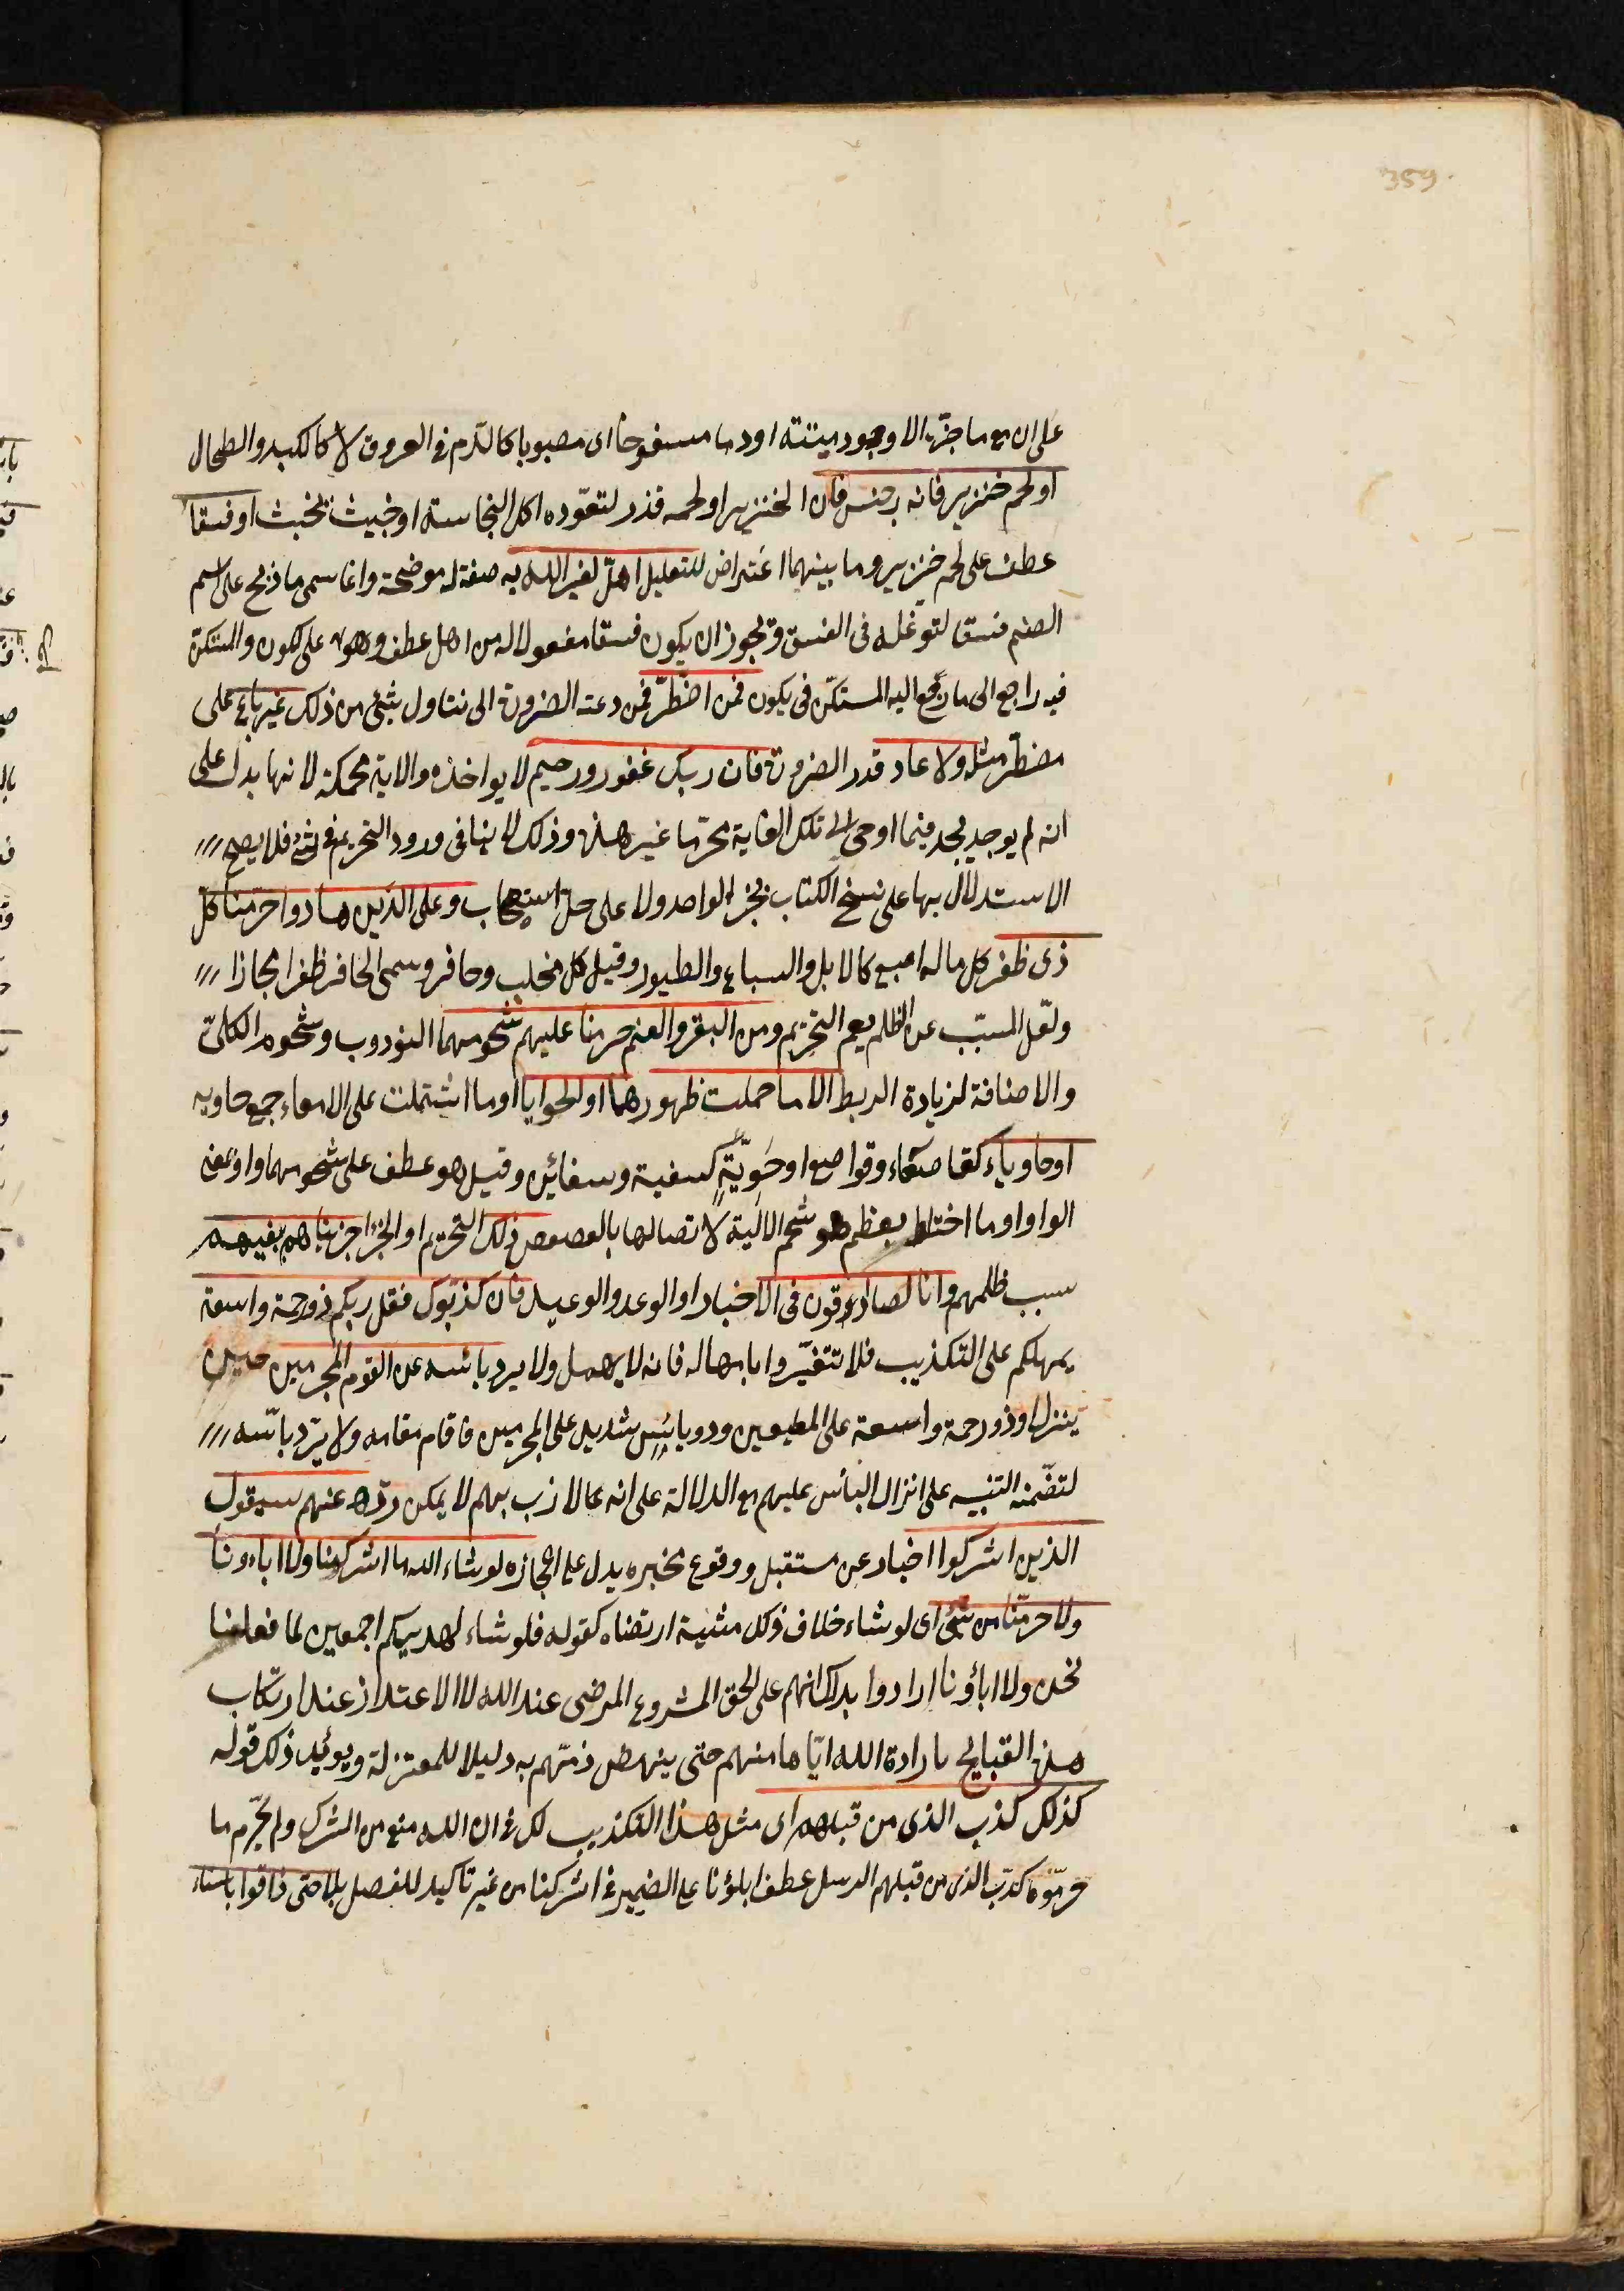 359
على ان مع ما جزّه الا وجود ميتته او دما مسفوحا اى مصبوبا كالدّم فى العروق لا كالكبد والطحال
او لحم خنزير فانه رجس فان الخنزير او لحمه قذر لتعوّده اكل النجاسة او خبيث مخبث او فسقا
عطف على لحم خنزير وما بينهما اعتراض للتعليل اهلّ لغير الله به صفة له موضحة وانما سمى ما ذبح على اسم
الصنم فسقا لتوغله فى الفسق ويجوز ان يكون فسقا مفعولا له من اهل عطف وهو على يكون والمستكنّ
فيه راجع الى ما رجع اليه المستكنّ فى يكون فمن اضطرّ فمن دعته الضرورة الى تناول شئ من ذلك غير باغ على
مضطرّ مثله ولا عاد قدر الضرورة فان ربك غفور رحيم لا يواخذه والاية محكمة لانها يدل على
انه لم يوجد يجد فيما اوحى الى تلك الغاية محرّما غير هذه وذلك لا ينافى ورود التحريم فى شئ فلا يصح
الاستدلال بها على نسخ الكتاب بخبر الواحد ولا على حلّ استصحاب وعلى الذين هادوا حرّمنا كلّ
ذى ظفر كل ما له اصبع كالابل والسباع والطيور وقيل كل مخلب وحافر وسمى الحافر ظفرا مجازا
ولعّل المسبّب عن الظلم يعم التحريم ومن البقر والغنم حرمنا عليهم شحومهما الثروب وشحوم الكلىّ
والاضافة لزيادة الربط الا ما حملت ظهورهما او الحوايا او ما اشتملت على الامعاء جمع حاويه
او حاوياء كقاصعاء وقواصع او حَوِيّةٍ كسفينة وسفائن وقيل هو عطف على شحومهما واو بمعنى
الواو او ما اختلط بعظم هو شحم الالية لاتصالها بالعصعص ذلك التحريم او الجزا جزيناهم ببغيهم
سبب ظلمهم وانا لصادقون فى الاخبار او الوعد والوعيد فان كذبّوك فقل ربكم ذو رحمة واسعة
يمهلكم على التكذيب فلا تتغيّروا بامهاله فانه لا يهمل ولا يرد باسه عن القوم المجرمين حين
ينزل او ذو رحمة واسعة على المطيعين وذو بائس شديد على المجرمين فاقام مقامه ولا يردّ باسه
لتضمنه التنبيه على انزال البأس عليهم مع الدلالة على انه عالازب بهم لا يمكن ردّه عنهم سيقول
الذين اشركوا اخبار عن مستقبل ووقوع مخبره يدل على اعجازه لو شاء الله ما اشركنا ولا اباءونا
ولا حرمّنا من شئ اى لو شاء خلاف ذلك مشية ارتضاء كقوله فلو شاء لهديكم اجمعين لما فعلنا
نحن ولا اباؤنا ارادوا بذلك انهم على الحق المشروع المرضى عند الله لا الاعتذار عند ارتكاب
هذه القبايح بارادة الله ايّاها منهم حتى ينهض ذمّهم به دليلا للمعتزلة ويوئيد ذلك قوله
كذلك كذب الذى من قبلهم اى مثل هذا التكذيب لك فى ان الله منع من الشرك ولم يحّرم ما
حرمّوه كذّب الذين من قبلهم الرسل عطف اباؤنا على الضمير فى اشركنا من غير تاكيد للفصل بلا حتى ذاقوا باسنا